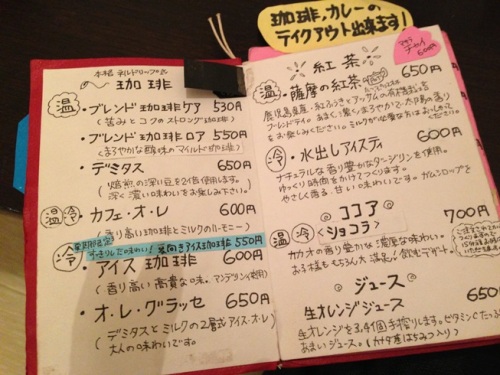 珈琲、カレーの
テイクアウト出来ます!
本格ネルドリップ式
珈琲
温
・ブレンド珈琲ケア 530円
(苦みとコクのストロング珈琲)
・ブレンド珈琲ロア 550円
(まろやかな酸味のマイルド珈琲)
・デミタス 650円
(焙煎の深い豆を2倍使用します。
深く濃い味わいをお楽しみ下さい。)
温 冷
・カフェ・オ・レ 600円
(香り高い珈琲とミルクのハーモニー)
夏期限定
すっきりした味わい! 夏向きアイス珈琲 550円
冷
・アイス珈琲 600円
(香り高い高貴な味。マンデリン使用)
・オ・レ・グラッセ 650円
(デミタスとミルクの2層式アイス・オ・レ
大人の味わいです。)
紅茶
チャイ
600円
温
・薩摩の紅茶 650円
冷
・水出しアイスティ 600円
ナチュラルな香り豊かなダージリンを使用。
ゆっくり時間をかけてつくります。
やさしく香る・甘い味わいです。ガムシロップを
温 冷
ココア 700円
(ショコラ)
カカオの香り豊かな濃厚な味わい。
お子様もくちろん大満足!飲むデザート。
ジュース
生オレンジジュース 650円
生オレンジを3,4個手搾りします。ビタミンCたっぷり
あまいジュース。(カナダ産はちみつ入り)